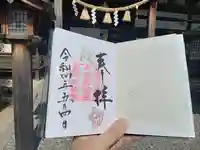 奉拝
令和四年五月四日